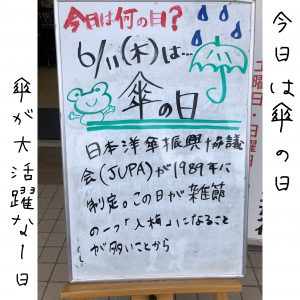 今日は傘の日
傘が大活躍な1日
今日は何の日?
6/11(木)は…
傘の日
日本洋傘振興協議
会(JUPA)が1989年に
制定。この日が雑節
の一つ「入梅」になること
が多いことから
土曜日・日曜